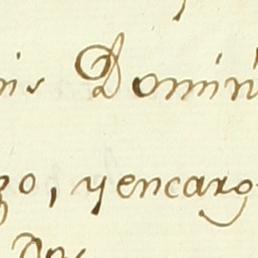 nis Domin
go, y encargo